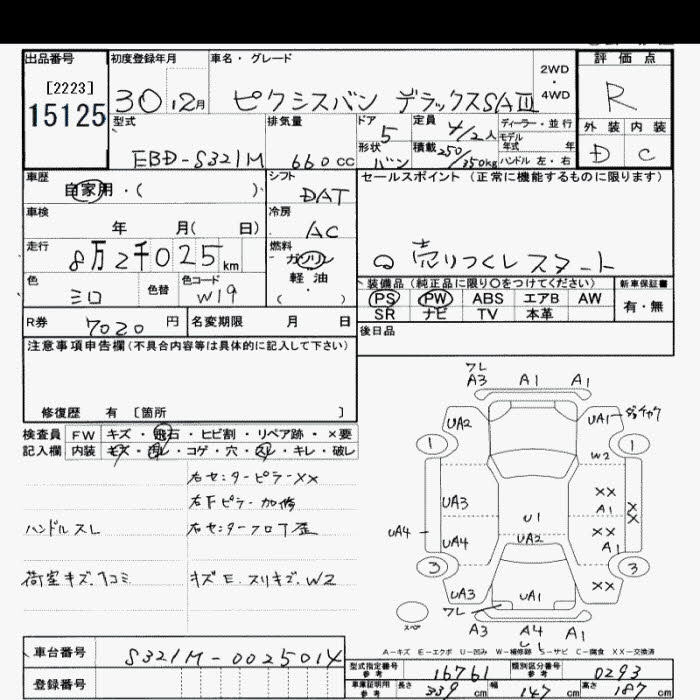 出品番号 初度登録年月 車名・グレード 評価点
[2223]
15125
30 12月 ピクシスバン デラックスSAⅢ 2WD・4WD R
型式 排気量 ドア 5 定員 4/2人 ディーラー・並行 外装 内装
モデル年式 年
EBD-S321M 660cc 形状 バン 積載 250/350kg ハンドル 左・右 D C
車歴 シフト セールスポイント (正常に機能するものに限ります)
自家用・( ) DAT
車検 冷房
年 月( 日) AC
走行 燃料
8万2千025km ガソリン 軽油 ( ) 売りつくしスタート
色 色替 色コード
W19
装備品 (純正品に限り○をつけてください) 新車保証書
PS PW ABS エアB AW 有・無
SR ナビ TV 本革
R券 7020円 名変期限 月 日 後日品
注意事項申告欄(不具合内容等は具体的に記入して下さい)
修復歴 有 [箇所 ]
検査員 FW キズ・飛石・ヒビ割・リペア跡・×要
記入欄 内装 キズ・汚レ・コゲ・穴・スレ・キレ・破レ
右センターピラーXX
右Fピラー加修
ハンドルスレ 右センターフロア歪
荷室キズ.凹コミ キズE.スリキズ.W2
ワレ
A3 A1 A1
UA2 UA1
1 1
W2
XX
UA3 A1 XX
U1
UA4 UA4 UA2 XX
A1
3 3
UA3 UA1 XX
ワレ
スペア
A3 A4 A1
U1
A=キズ E=エクボ U=凹み W=補修跡 S=サビ C=腐食 XX=交換済
車台番号 S321M-0025014
登録番号
型式指定番号 参考 16761 類別区分番号 参考 0293
車庫証明用 参考 長さ 339cm 幅 147cm 高さ 187cm